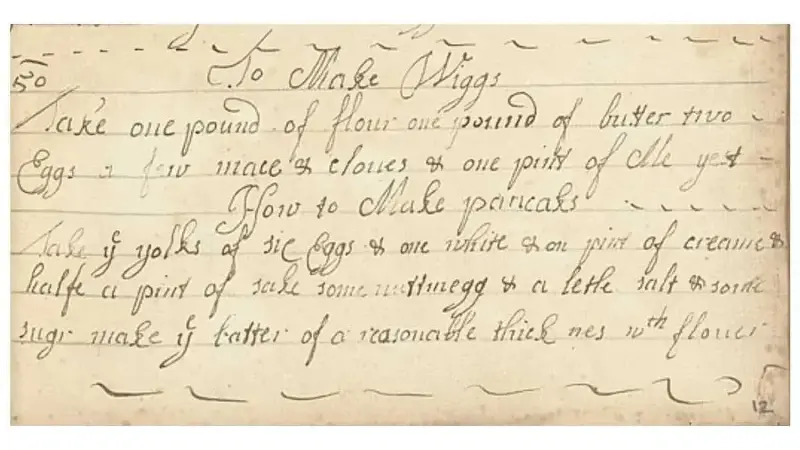 50
To Make Wiggs
Take one pound of flour one pound of butter two
Eggs a few mace & cloues & one pint of Ale yest
How to Make pancaks
Take yͤ yolks of sic Eggs & one white & on pint of creame &
halfe a pint of sake some nuttmegg & a letle salt & some
sugr make yͤ batter of a reasonable thick nes wth flouer
12